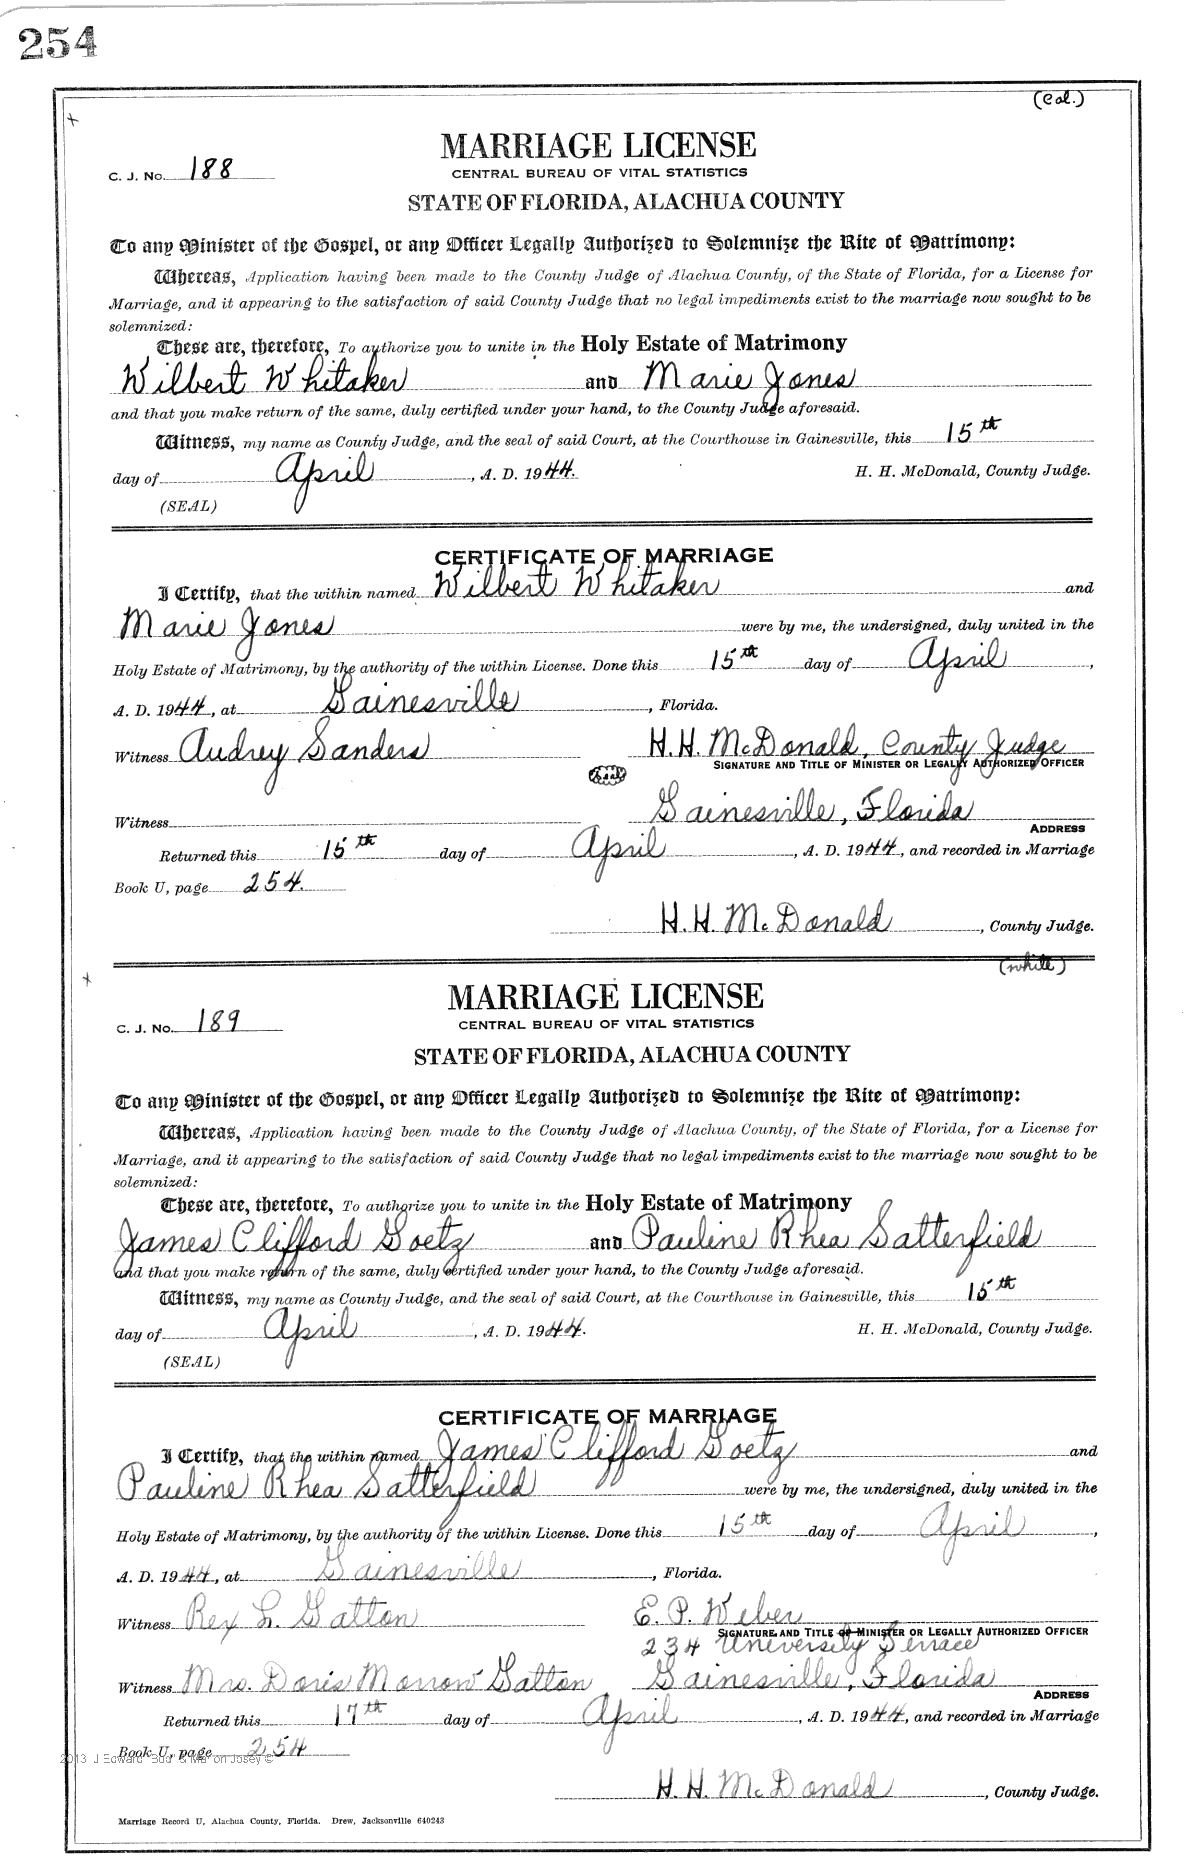 254
(Col.)
MARRIAGE LICENSE
C. J. No. 188
CENTRAL BUREAU OF VITAL STATISTICS
STATE OF FLORIDA, ALACHUA COUNTY
To any Minister of the Gospel, or any Officer Legally Authorized to Solemnize the Rite of Matrimony:
Whereas, Application having been made to the County Judge of Alachua County, of the State of Florida, for a License for
Marriage, and it appearing to the satisfaction of said County Judge that no legal impediments exist to the marriage now sought to be
solemnized:
These are, therefore, To authorize you to unite in the Holy Estate of Matrimony
Wilbert Whitaker and Marie Jones
and that you make return of the same, duly certified under your hand, to the County Judge aforesaid.
Witness, my name as County Judge, and the seal of said Court, at the Courthouse in Gainesville, this 15th
day of April, A. D. 1944. H. H. McDonald, County Judge.
(SEAL)
CERTIFICATE OF MARRIAGE
I Certify, that the within named Wilbert Whitaker and
Marie Jones were by me, the undersigned, duly united in the
Holy Estate of Matrimony, by the authority of the within License. Done this 15th day of April,
A. D. 1944, at Gainesville, Florida.
Witness Audrey Sanders H. H. McDonald, County Judge
SIGNATURE AND TITLE OF MINISTER OR LEGALLY AUTHORIZED OFFICER
(Seal)
Witness Gainesville, Florida
ADDRESS
Returned this 15th day of April, A. D. 1944, and recorded in Marriage
Book U, page 254.
H. H. McDonald, County Judge.
(white)
MARRIAGE LICENSE
C. J. No. 189
CENTRAL BUREAU OF VITAL STATISTICS
STATE OF FLORIDA, ALACHUA COUNTY
To any Minister of the Gospel, or any Officer Legally Authorized to Solemnize the Rite of Matrimony:
Whereas, Application having been made to the County Judge of Alachua County, of the State of Florida, for a License for
Marriage, and it appearing to the satisfaction of said County Judge that no legal impediments exist to the marriage now sought to be
solemnized:
These are, therefore, To authorize you to unite in the Holy Estate of Matrimony
James Clifford Goetz and Pauline Rhea Satterfield
and that you make return of the same, duly certified under your hand, to the County Judge aforesaid.
Witness, my name as County Judge, and the seal of said Court, at the Courthouse in Gainesville, this 15th
day of April, A. D. 1944. H. H. McDonald, County Judge.
(SEAL)
CERTIFICATE OF MARRIAGE
I Certify, that the within named James Clifford Goetz and
Pauline Rhea Satterfield were by me, the undersigned, duly united in the
Holy Estate of Matrimony, by the authority of the within License. Done this 15th day of April,
A. D. 1944, at Gainesville, Florida.
Witness Rex L. Gatton E. P. Weber
SIGNATURE AND TITLE OF MINISTER OR LEGALLY AUTHORIZED OFFICER
234 University Terrace
Witness Mrs. Doris Morrow Gatton Gainesville, Florida
ADDRESS
Returned this 17th day of April, A. D. 1944, and recorded in Marriage
Book U, page 254
H. H. McDonald, County Judge.
Marriage Record U, Alachua County, Florida. Drew, Jacksonville 640243